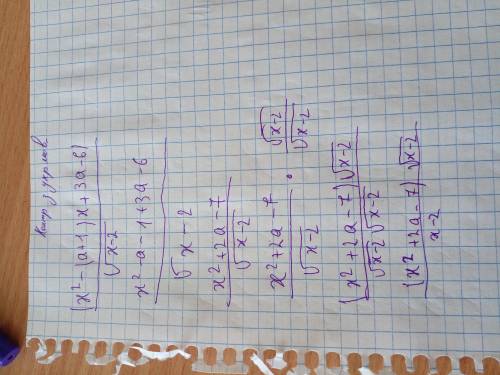 (x²-(a+1)x+3a-6)
√x-2
x²-a-1+3a-6
√x-2
x²+2a-7
√x-2
x²+2a-7 · √x-2
√x-2 √x-2
(x²+2a-7)√x-2
√x-2√x-2
(x²+2a-7)√x-2
x-2